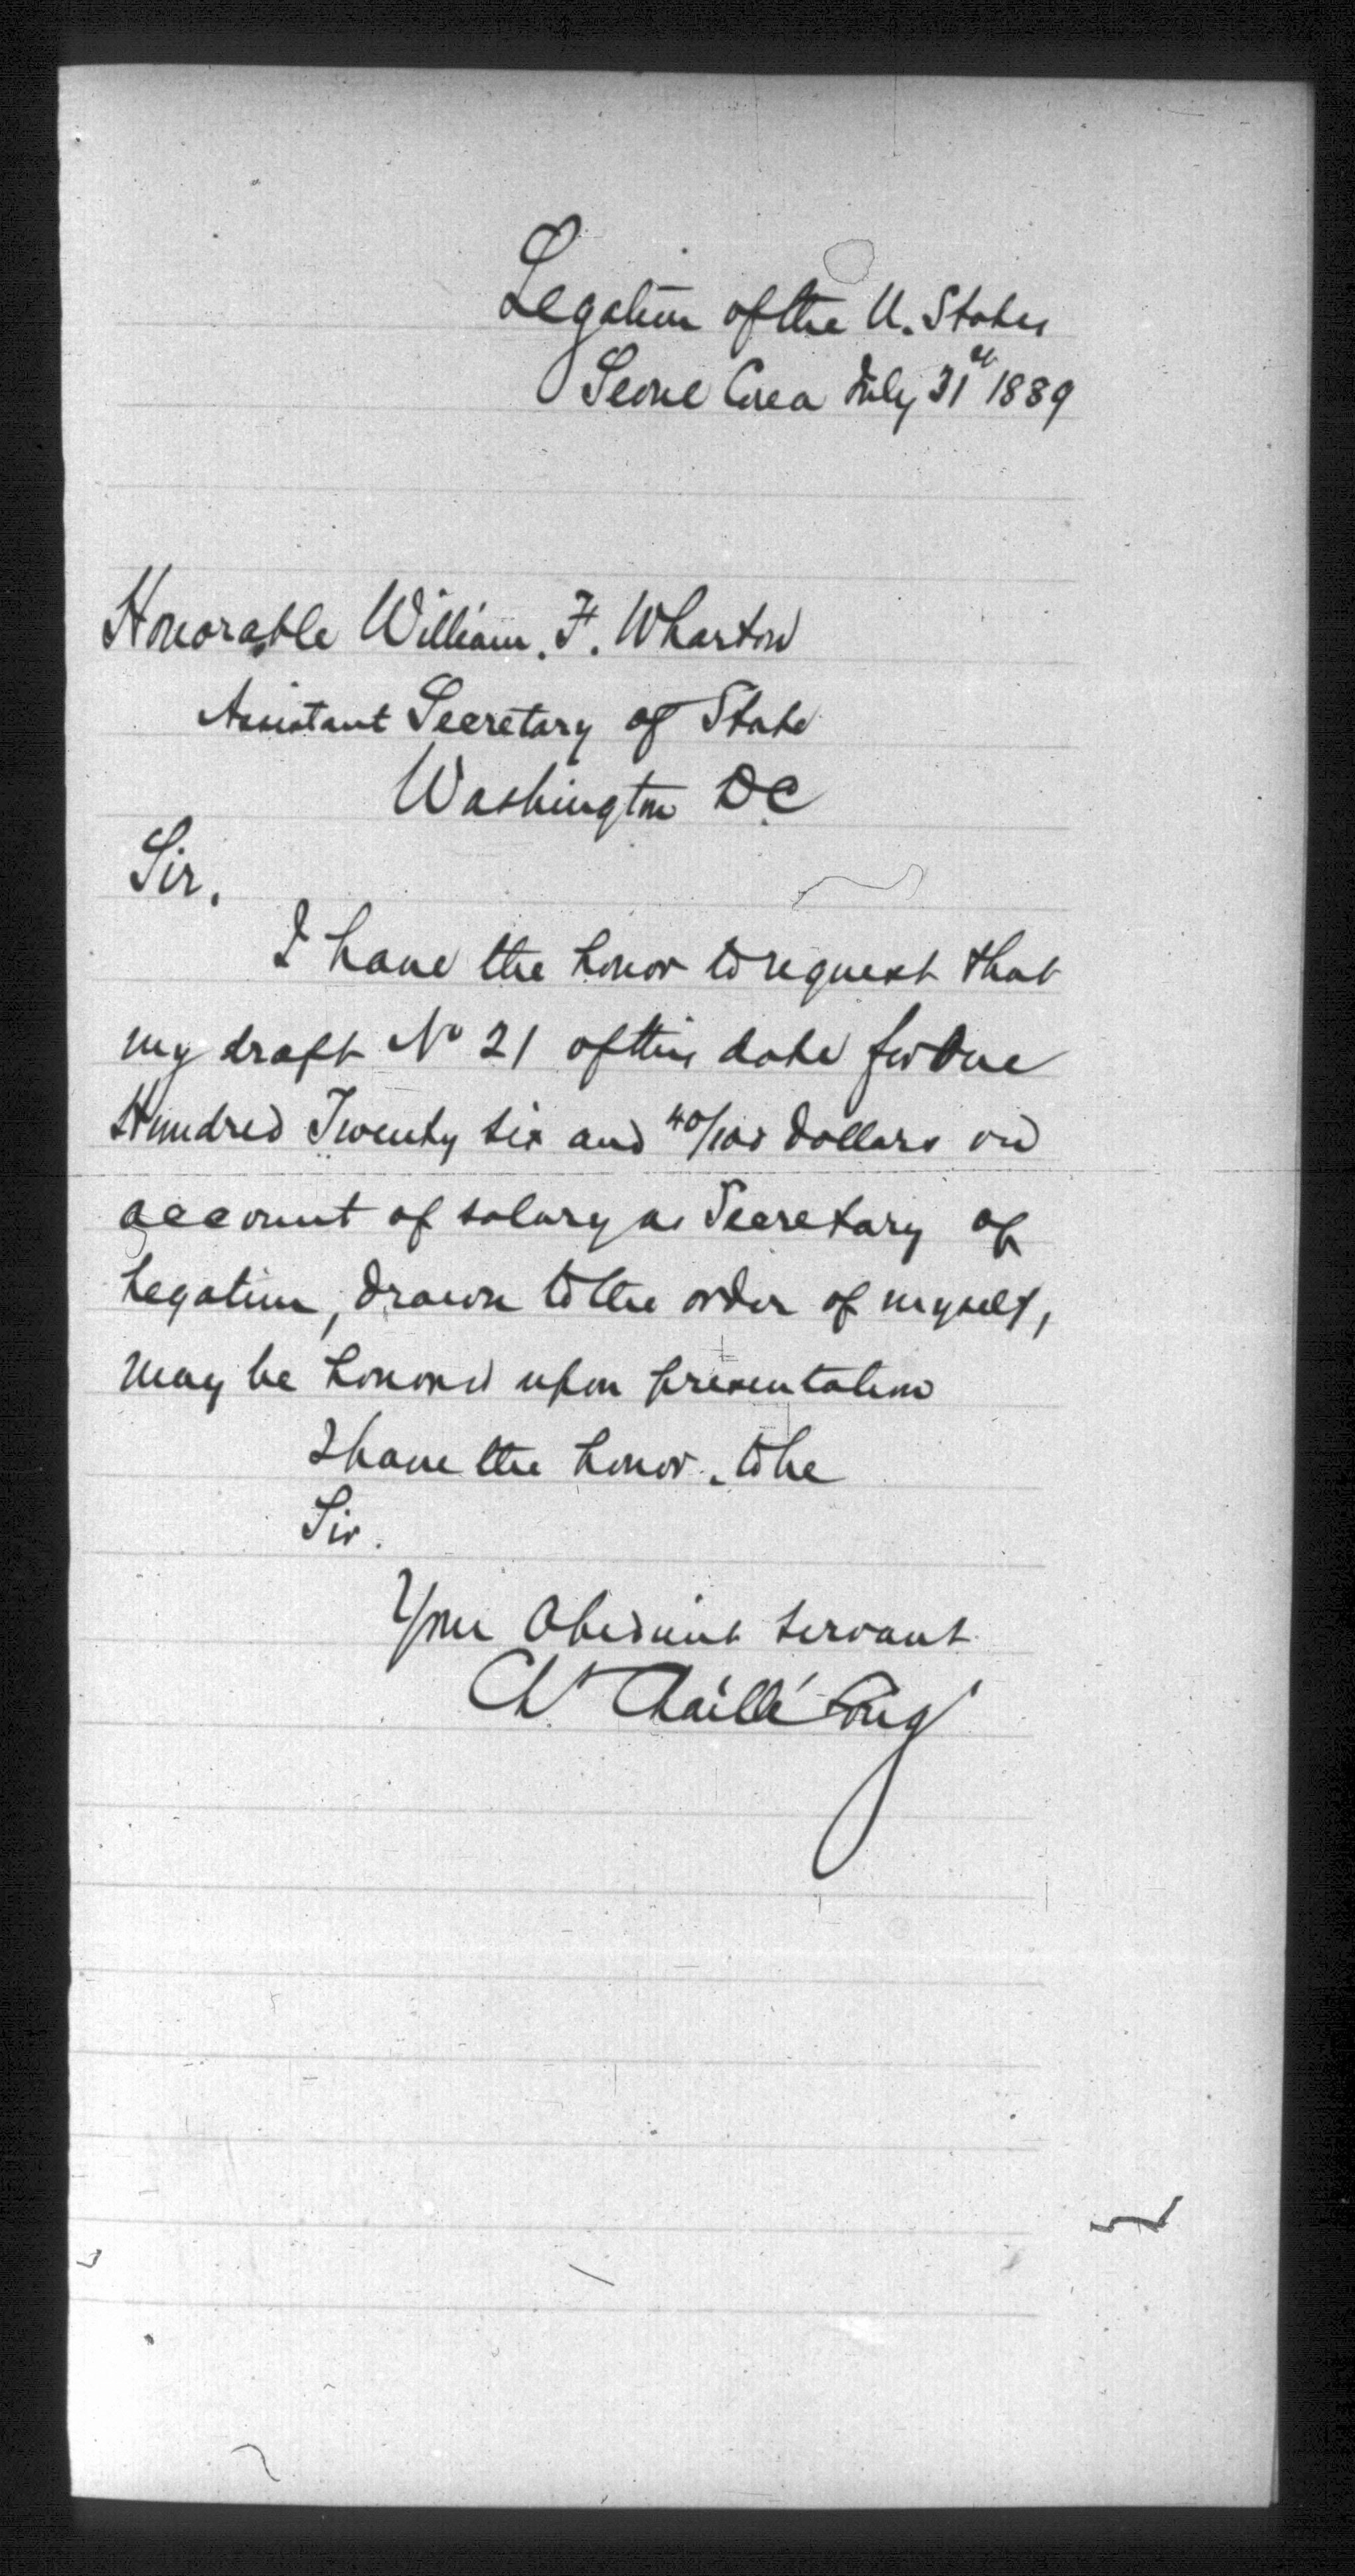 Legation of the U. States
Seoul Corea July 31st 1889
Honorable William. F. Wharton
Assistant Secretary of State
Washington DC
Sir,
I have the honor to request that
my draft No 21 of this date for One
Hundred Twenty six and 40/100 dollars on
account of salary as Secretary of
Legation, drawn to the order of myself,
may be honored upon presentation
I have the honor to be
Sir.
Your Obedient Servant
Ch Chaillé Long